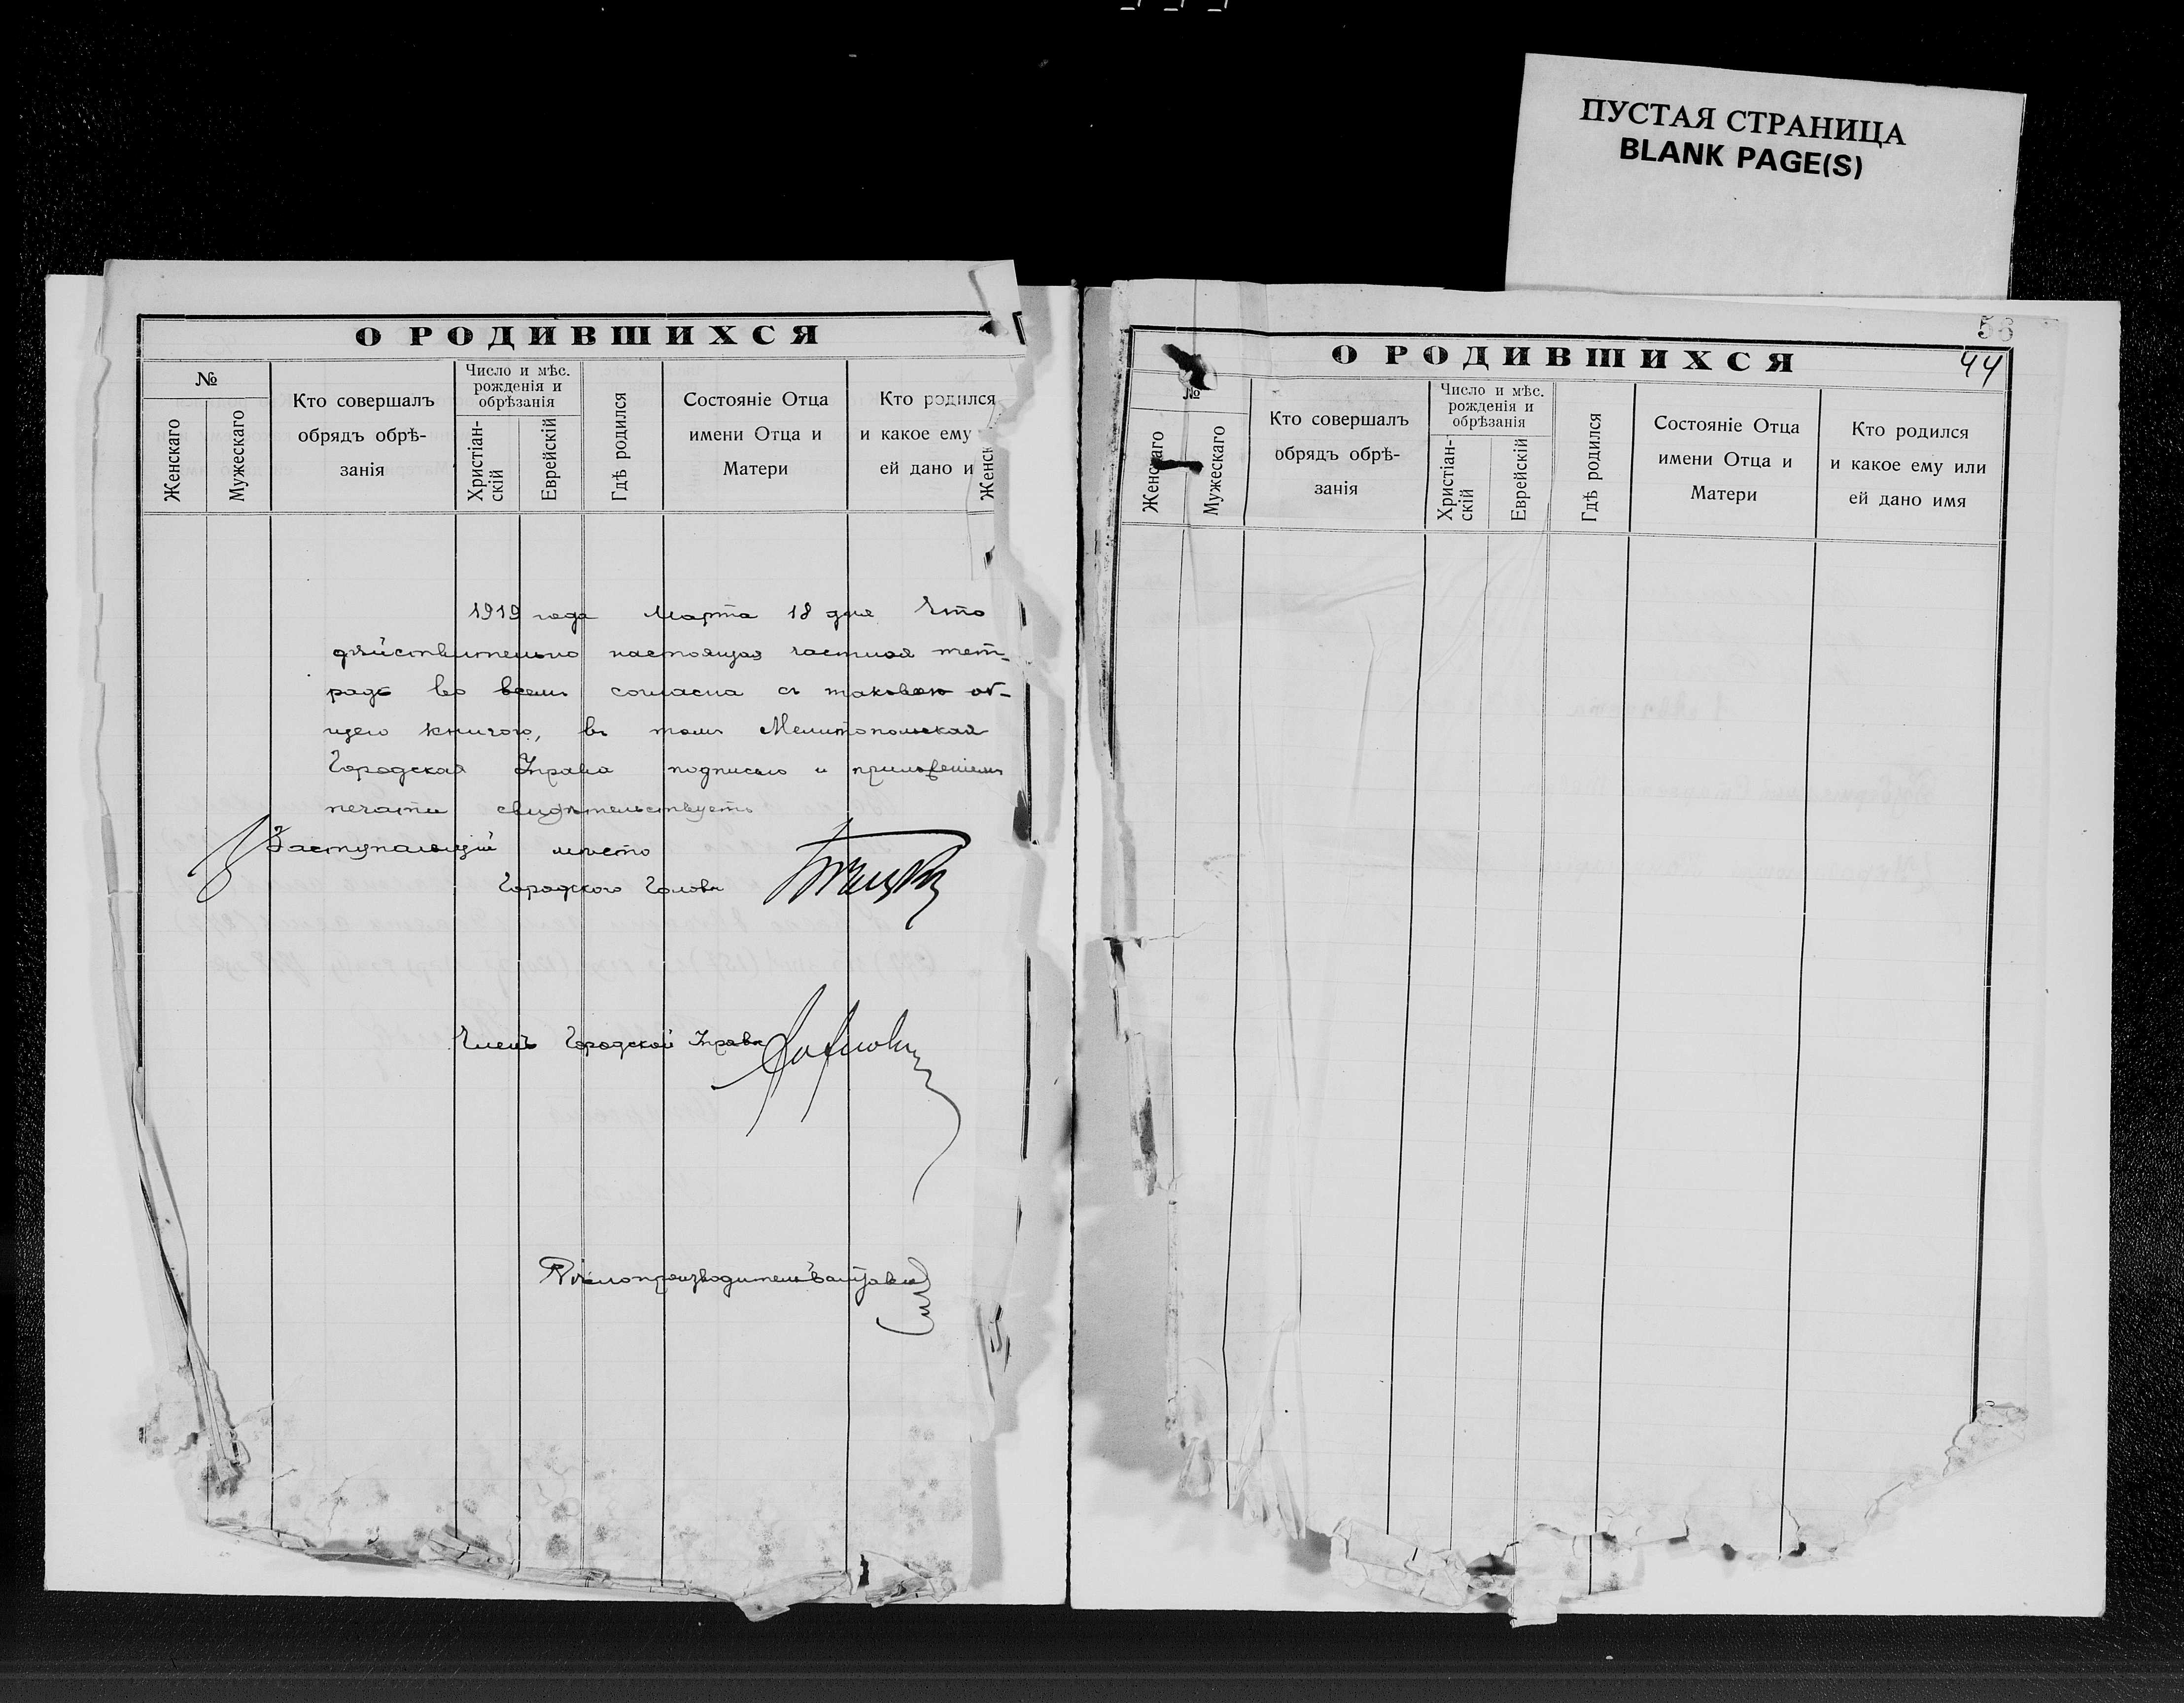 ПУСТАЯ СТРАНИЦА
BLANK PAGE(S)
О РОДИВШИХСЯ
№
Женскаго
Мужескаго
Кто совершалъ
обрядъ обрѣ-
занія
Число и мѣс.
рожденія и
обрѣзанія
Христіан-
скій
Еврейскій
Гдѣ родился
Состояніе Отца
имени Отца и
Матери
Кто родился
и какое ему
ей дано и
Женск
1919 года Марта 18 дня Что
дѣйствительно настоящая частная тет-
радь во всемъ согласна съ таковою об-
щею книгою, въ томъ Мелитопольская
Городская Управа подписью и приложеніемъ
печати свидѣтельствуетъ
Заступающій мѣсто
Городского Головы
Членъ Городской Управы
Дѣлопроизводитель
56
44
О РОДИВШИХСЯ
№
Женскаго
Мужескаго
Кто совершалъ
обрядъ обрѣ-
занія
Число и мѣс.
рожденія и
обрѣзанія
Христіан-
скій
Еврейскій
Гдѣ родился
Состояніе Отца
имени Отца и
Матери
Кто родился
и какое ему или
ей дано имя